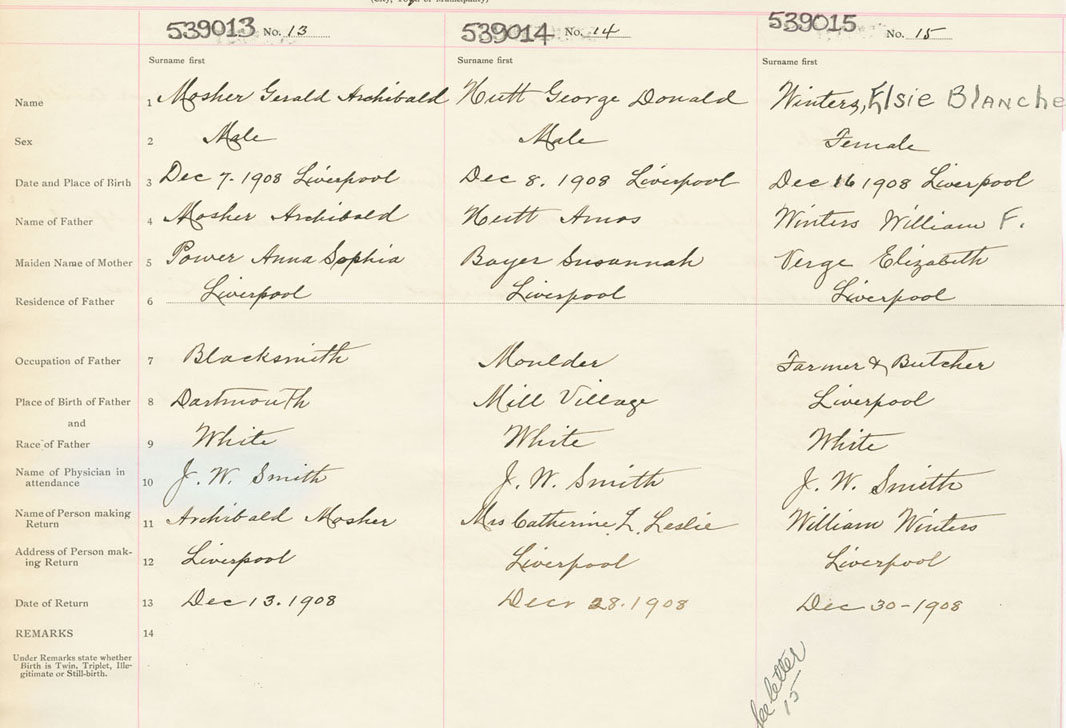 539013 No. 13 539014 No. 14 539015 No. 15
Surname first Surname first Surname first
Name 1 Mosher Gerald Archibald Hutt George Donald Winters, Elsie Blanche
Sex 2 Male Male Female
Date and Place of Birth 3 Dec 7. 1908 Liverpool Dec 8. 1908 Liverpool Dec 16 1908 Liverpool
Name of Father 4 Mosher Archibald Hutt Amos Winters William F.
Maiden Name of Mother 5 Power Anna Sophia Boyer Susannah Verge Elizabeth
Residence of Father 6 Liverpool Liverpool Liverpool
Occupation of Father 7 Blacksmith Moulder Farmer & Butcher
Place of Birth of Father 8 Dartmouth Mill Village Liverpool
and
Race of Father 9 White White White
Name of Physician in
attendance 10 J. W. Smith J. W. Smith J. W. Smith
Name of Person making
Return 11 Archibald Mosher Mrs Catherine L. Leslie William Winters
Address of Person mak-
ing Return 12 Liverpool Liverpool Liverpool
Date of Return 13 Dec 13. 1908 Decr 28. 1908 Dec 30-1908
REMARKS 14
Under Remarks state whether
Birth is Twin, Triplet, Ille-
gitimate or Still-birth.
See letter
15